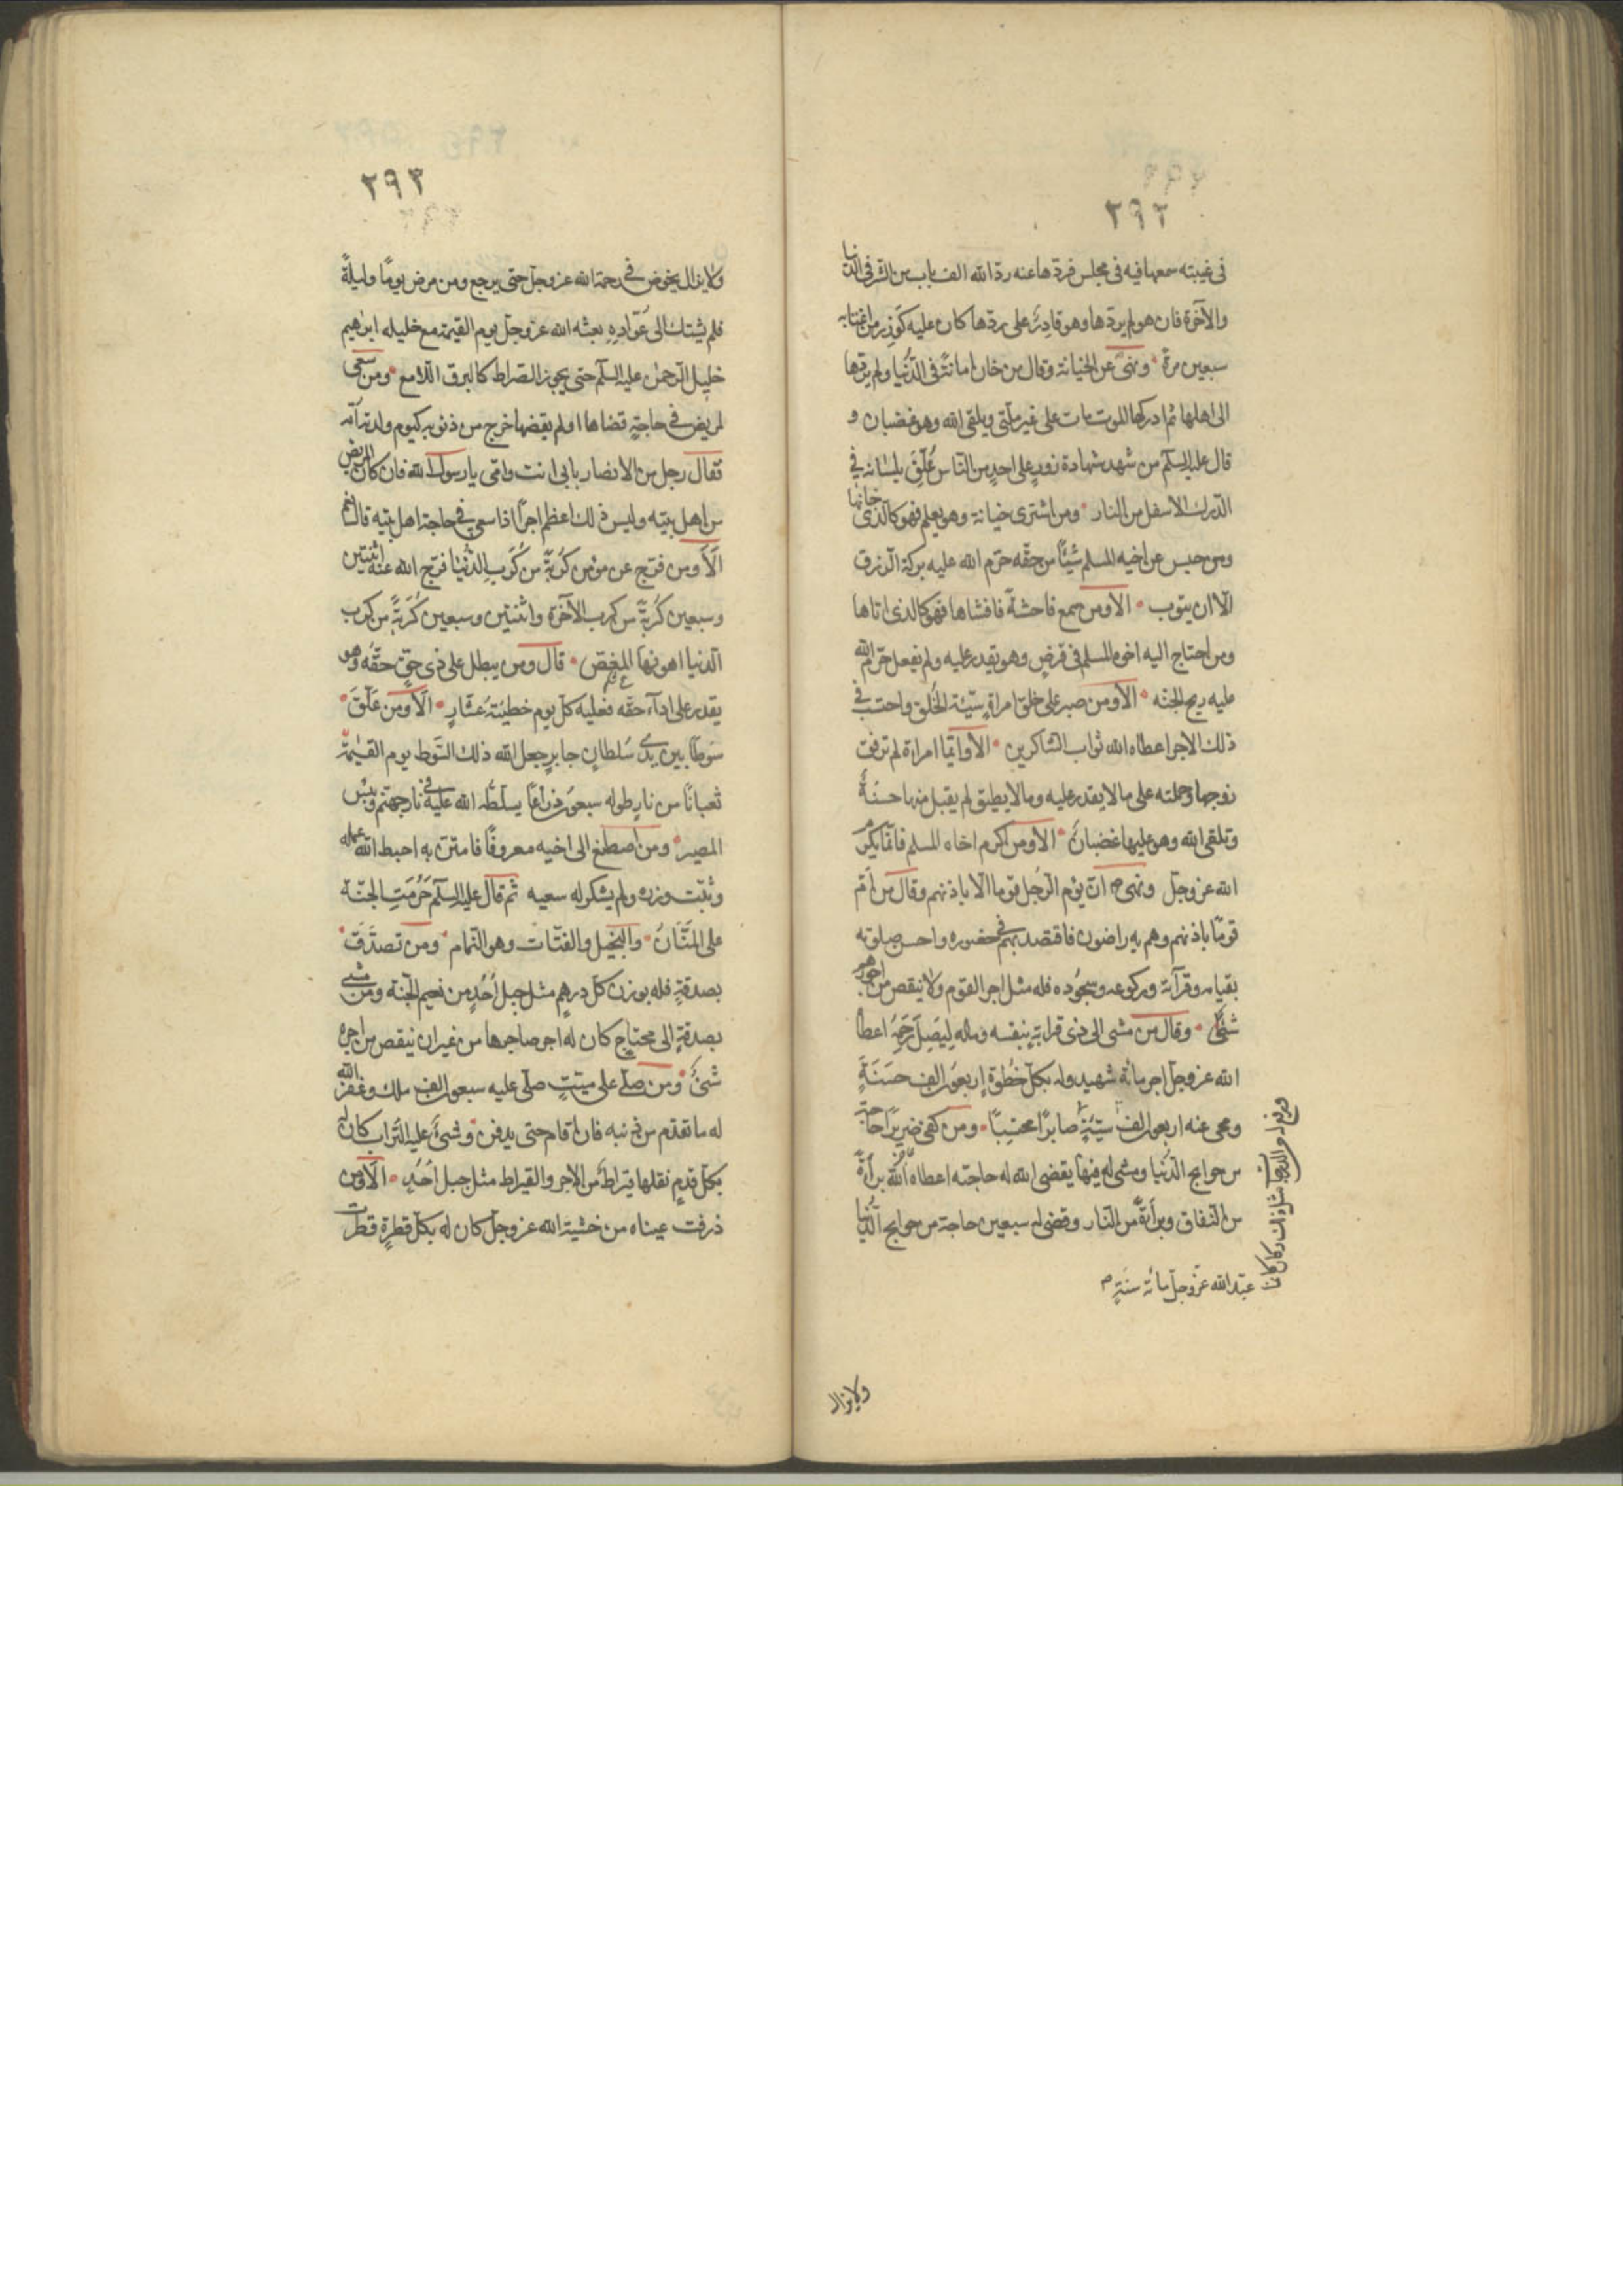 ٢٩٢
فى غيبته سمعها فيه فى مجلس فردها عنه ردّ الله الف باب من الشر فى الدنيا
والآخرة فان هو لم يردها وهو قادر على ردّها كان عليه كوزر من اغتابه
سبعين مرة ونهى عن الخيانة وقال من خان امانة فى الدنيا ولم يردها
الى اهلها ثم ادركها الموت مات على غير ملتى ويلقى الله وهو غضبان و
قال عليه السلم من شهد شهادة زور على احد من الناس عُلّق بلسانه فى
الدرك الاسفل من النار ومن اشترى خيانة وهو يعلم فهو كالذى خانها
ومن حبس عن اخيه المسلم شيئا من حقّه حرّم الله عليه بركة الرزق
الّا ان يتوب الا ومن سمع فاحشة فافشاها فهو كالذى اتاها
ومن احتاج اليه اخوه المسلم فى قرض وهو يقدر عليه ولم يفعل حرّم الله
عليه ريح الجنّه الا ومن صبر على خلق امراةٍ سيّئة الخُلق واحتسب فى
ذلك الاجر اعطاه الله ثواب الشاكرين الا وايّما امراة لم ترفق
زوجها وحملته على ما لا يقدر عليه وما لا يطيق لم يقبل منها حسنةٌ
وتلقى الله وهو عليها غضبان الا ومن اكرم اخاه المسلم فانّما يكرم
الله عز وجلّ ونهى ص ان يؤم الرّجل قوما الّا باذنهم وقال من اَمّ
قومًا باذنهم وهم به راضون فاقتصد بهم فى حضوره واحسن صلوته
بقيامه وقرآءته وركوعه وسجوده فله مثل اجر القوم ولا ينقص من اجورهم
شئ وقال من مشى الى ذى قرابة بنفسه وماله ليَصِلَ رَحِمَه اعطاه
الله عز وجلّ اجر مائة شهيد وله بكلّ خُطوةٍ اربعون الف حسَنَةٍ
ومحى عنه اربعون الف سيّئةٍ صابرًا محتسبًا ومن كفى ضريرًا حاجة
من حوايج الدّنيا ومشى له فيها يقضى الله له حاجته اعطاه الله براءةً
من النّفاق وبراءةً من النّار وقضى له سبعين حاجة من حوايج الدّنيا
عبد الله عزّ وجلّ مائة سنةٍ ص
ولا يزال
٢٩٣
ولا يزال يخوض فى رحمة الله عز وجلّ حتى يرجع ومن مرض يومًا وليلةً
فلم يشتك الى عُوّاده بعثه الله عز وجلّ يوم القيمة مع خليله ابرٰهيم
خليل الرّحمن عليه السلم حتى يجوز الصّراط كالبرق اللّامع ومن سعى
لمريض فى حاجةٍ قضاها او لم يقضها خرج من ذنوبه كيوم ولدته امّه
فقال رجل من الانصار بابى انت وامّى يا رسول الله فان كان المريض
من اهل بيته وليس ذلك اعظم اجرًا اذا سعى فى حاجة اهل بيته قال نعم
اَلا ومن فرّج عن مؤمن كُربةً من كُرَب الدّنيا فرّج الله عنه اثنتين
وسبعين كُربةً من كرب الآخرة واثنتين وسبعين كُربةً من كرب
الدنيا اهونها المغص قال ومن يبطل على ذى حقّ حقّه وهو
يقدر على اداء حقّه فعليه كلّ يوم خطيئة عشّارٍ اَلا ومن علّق
سوطًا بين يدى سلطان جايرٍ جعل الله ذلك السّوط يوم القيٰمة
ثعبانًا من نارٍ طوله سبعون ذراعًا يسلّطه الله عليه فى نار جهنّم وبئس
المصير ومن اصطنع الى اخيه معروفًا فامتنّ به احبط الله عمله
وثبّت وزره ولم يشكر له سعيه ثم قال عليه السلم حُرّمَت الجنّة
على المنّان والبخيل والقتّات وهو النّمام ومن تصدّق
بصدقةٍ فله بوزن كلّ درهم مثل جبل اُحُدٍ من نعيم الجنّة ومن مشى
بصدقةٍ الى محتاج كان له اجر صاحبها من غير ان ينقص من اجره
شئ ومن صلّى على ميّتٍ صلّى عليه سبعون الف ملك وغفر الله
له ما تقدّم من ذنبه فان اقام حتى يدفن وحُثى عليه التراب كان له
بكلّ قدم نقلها قيراط من الاجر والقيراط مثل جبل اُحُدٍ اَلا ومن
ذرفت عيناه من خشية الله عز وجلّ كان له بكلّ قطرةٍ قطرت